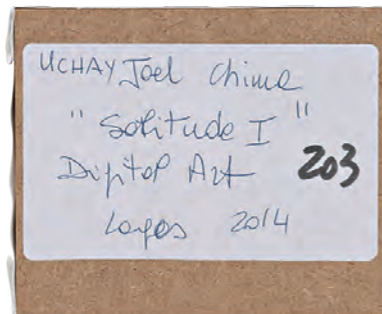 UCHAY Joel Chima
"Solitude I"
Digital Art 203
Lagos 2014